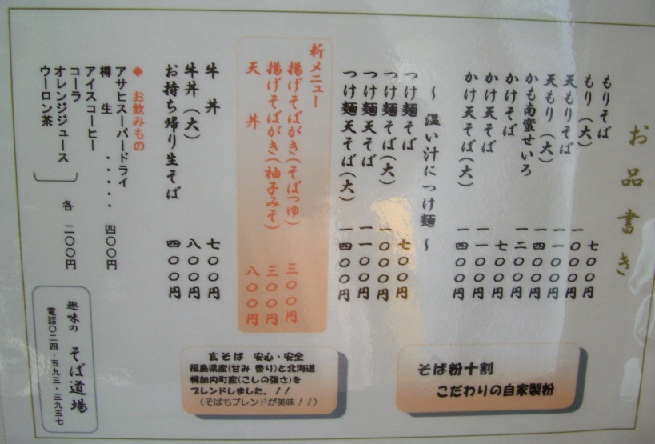 お品書き
もりそば 七〇〇円
もり(大) 一〇〇〇円
天もりそば 一一〇〇円
天もり(大) 一四〇〇円
かも南蛮せいろ 一二〇〇円
かけそば 七〇〇円
かけ天そば 一一〇〇円
かけ天そば(大) 一四〇〇円
～ 温い汁につけ麺 ～
つけ麺そば 七〇〇円
つけ麺そば(大) 一〇〇〇円
つけ麺天そば 一一〇〇円
つけ麺天そば(大) 一四〇〇円
新メニュー
揚げそばがき(そばつゆ) 三〇〇円
揚げそばがき(柚子みそ) 三〇〇円
天丼 八〇〇円
牛丼 七〇〇円
牛丼(大) 八〇〇円
お持ち帰り生そば 四〇〇円
◆ お飲みもの
アサヒスーパードライ
樽生 ・・・・・ 四〇〇円
アイスコーヒー
コーラ
オレンジジュース
ウーロン茶
各 二〇〇円
そば粉十割
こだわりの自家製粉
玄そば 安心・安全
福島県産(甘み 香り)と北海道
幌加内町産(こしの強さ)を
ブレンドしました。!!
(そばもブレンドが美味!!)
趣味の そば道場
電話〇二四-五九三-三九三七